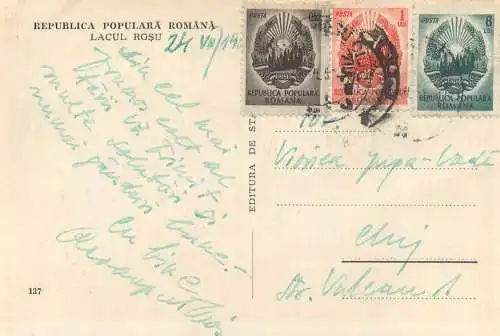 REPUBLICA POPULARĂ ROMÂNĂ
LACUL ROȘU
24 VII
Din cel mai
frumos colț al
țării vă trimit
multe salutări și
numai gânduri bune.
cu bine
137
EDITURA DE STA
POSTA
REPUBLICA POPULARA
ROMANA
POSTA
1 LEU
REPUBLICA POPULARA
ROMANA
POSTA
8 LEI
REPUBLICA POPULARA
ROMANA
Viorica Popa-Vadă
Cluj
Str. Vulcan